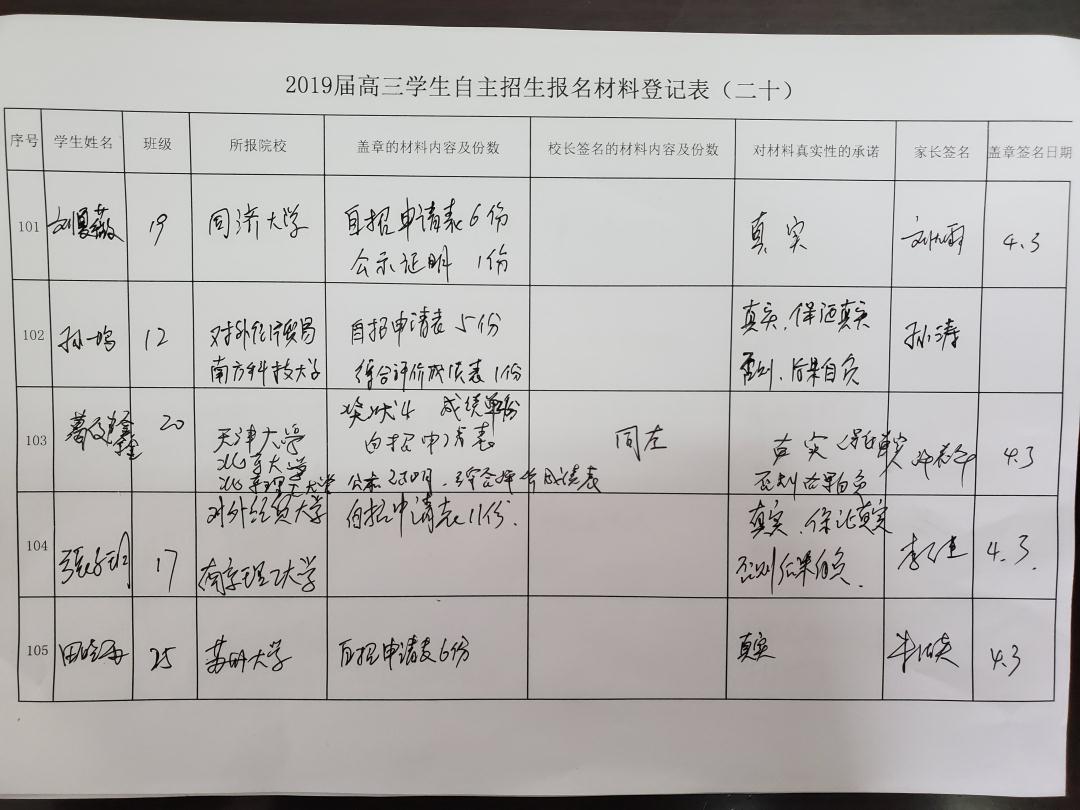 2019届高三学生自主招生报名材料登记表（二十）
序号 学生姓名 班级 所报院校 盖章的材料内容及份数 校长签名的材料内容及份数 对材料真实性的承诺 家长签名 盖章签名日期
101 刘夏薇 19 同济大学 自招申请表6份 真实 4.3
公示证明 1份
102 孙一鸣 12 对外经济贸易 自招申请表 5份 真实、保证真实 孙涛
南方科技大学 综合评价成绩表1份 否则、后果自负
103 20 天津大学 奖状4 成绩单 同左 真实 保证真实 4.3
北京大学 自招申请表 否则后果自负
北京理工大学 公示证明、综合评价成绩表
104 17 对外经贸大学 自招申请表11份. 真实、保证真实 4.3.
南京理工大学 否则后果自负.
105 田晓雨 25 苏州大学 自招申请表6份 真实 4.3